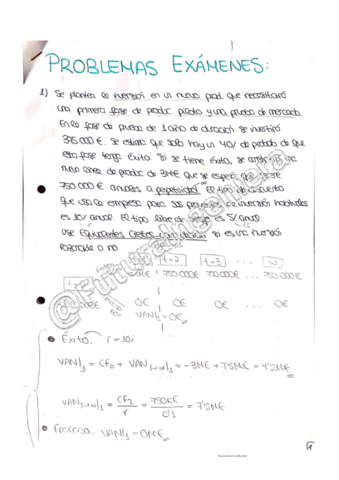 PROBLEMAS EXÁMENES:
1) Se plantea la inversión en un nuevo prod. que necesitará
una primera fase de produc. piloto y una prueba de mercado.
En la fase de prueba de 1 año de duración se invertirá
375000 €. Se estima que solo hay un 40% de de que
esta fase tenga éxito. Si se tiene éxito, se una
nueva línea de produc. de 3M€ que se espera que
750000€ anuales a perpetuidad. El tipo de descuento
que usa la empresa para sus de inversión habituales
es 10% anual. El tipo libre de riesgo es 5% anual
Use Equivalentes Ciertos si es una inversión
o no.
t=2 t=3 ... ∞
750000€ 750000€ ... 750000€
0€ 0€ 0€
VAN|₁=0€
Éxito: r=10%
VAN|₁ = CF₀ + VAN₁→∞|₁ = -3M€ + 7'5M€ = 4'5M€
VAN₁→∞|₁ = CF₂/r = 750K€/0'1 = 7'5M€
Fracaso: VAN|₁ = 0M€
@Futuraingeniera